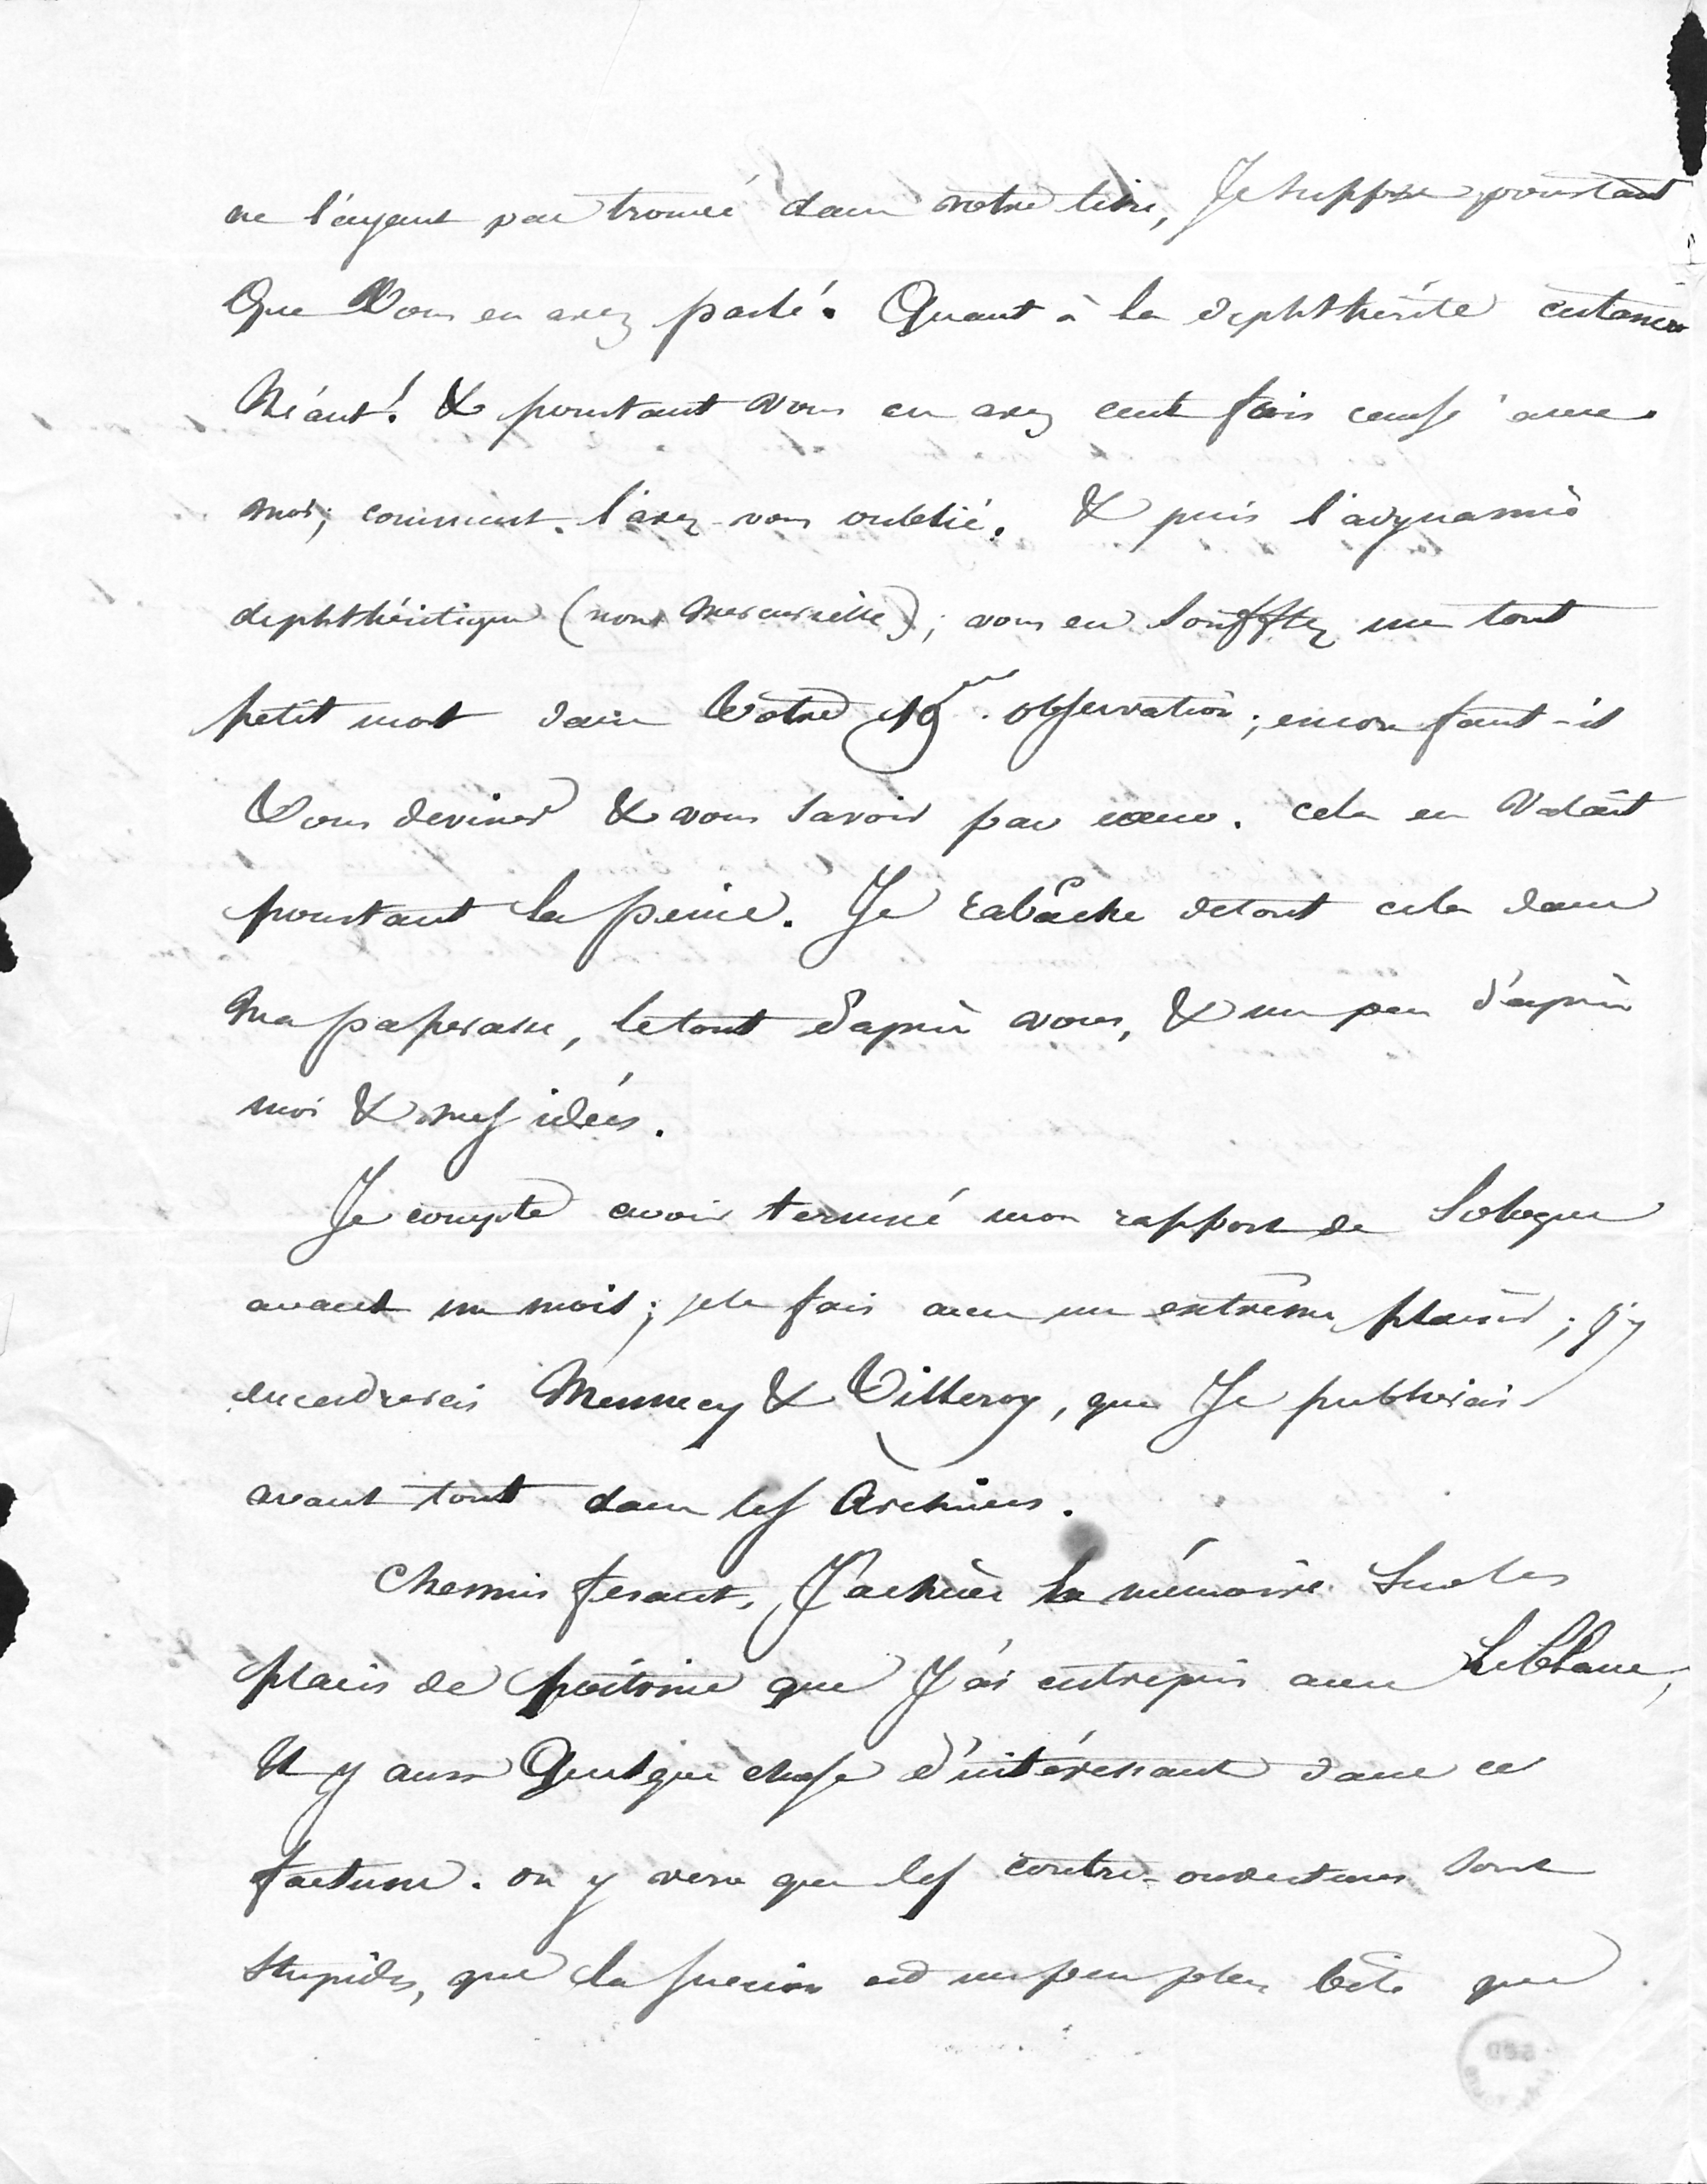 ne l'ayant pas trouvé dans votre livre, Je suppose pourtant
Que Vous en avez parlé. Quant à la diphthérite cutanée
Néant! & pourtant vous en avez cent fois causé avec
moi; comment l'avez-vous oublié. & puis l'adynamie
diphthéritique (non mercurielle); vous en soufflez un tout
petit mot dans Votre 19me. observation; encore faut-il
Vous deviner & vous savoir par cœur. cela en Valait
pourtant la peine. Je rabâche de tout cela dans
Ma paperasse, le tout d'après vous, & un peu d'après
moi & mes idées.
Je compte avoir terminé mon rapport de Sologne
avant un mois; je le fais avec un extrême plaisir; j'y
encadrerais Mennecy & Villeroy, que Je publierais
avant tout dans les Archives.
Chemin fesant, J'achève le mémoire Sur les
plaies de poitrine que J'ai entrepris avec LeBlanc,
Il y aura Quelque chose d'intéressant dans ce
factum. on y verra que les contre-ouvertures sont
Stupides, que la succion est un peu plus bête que